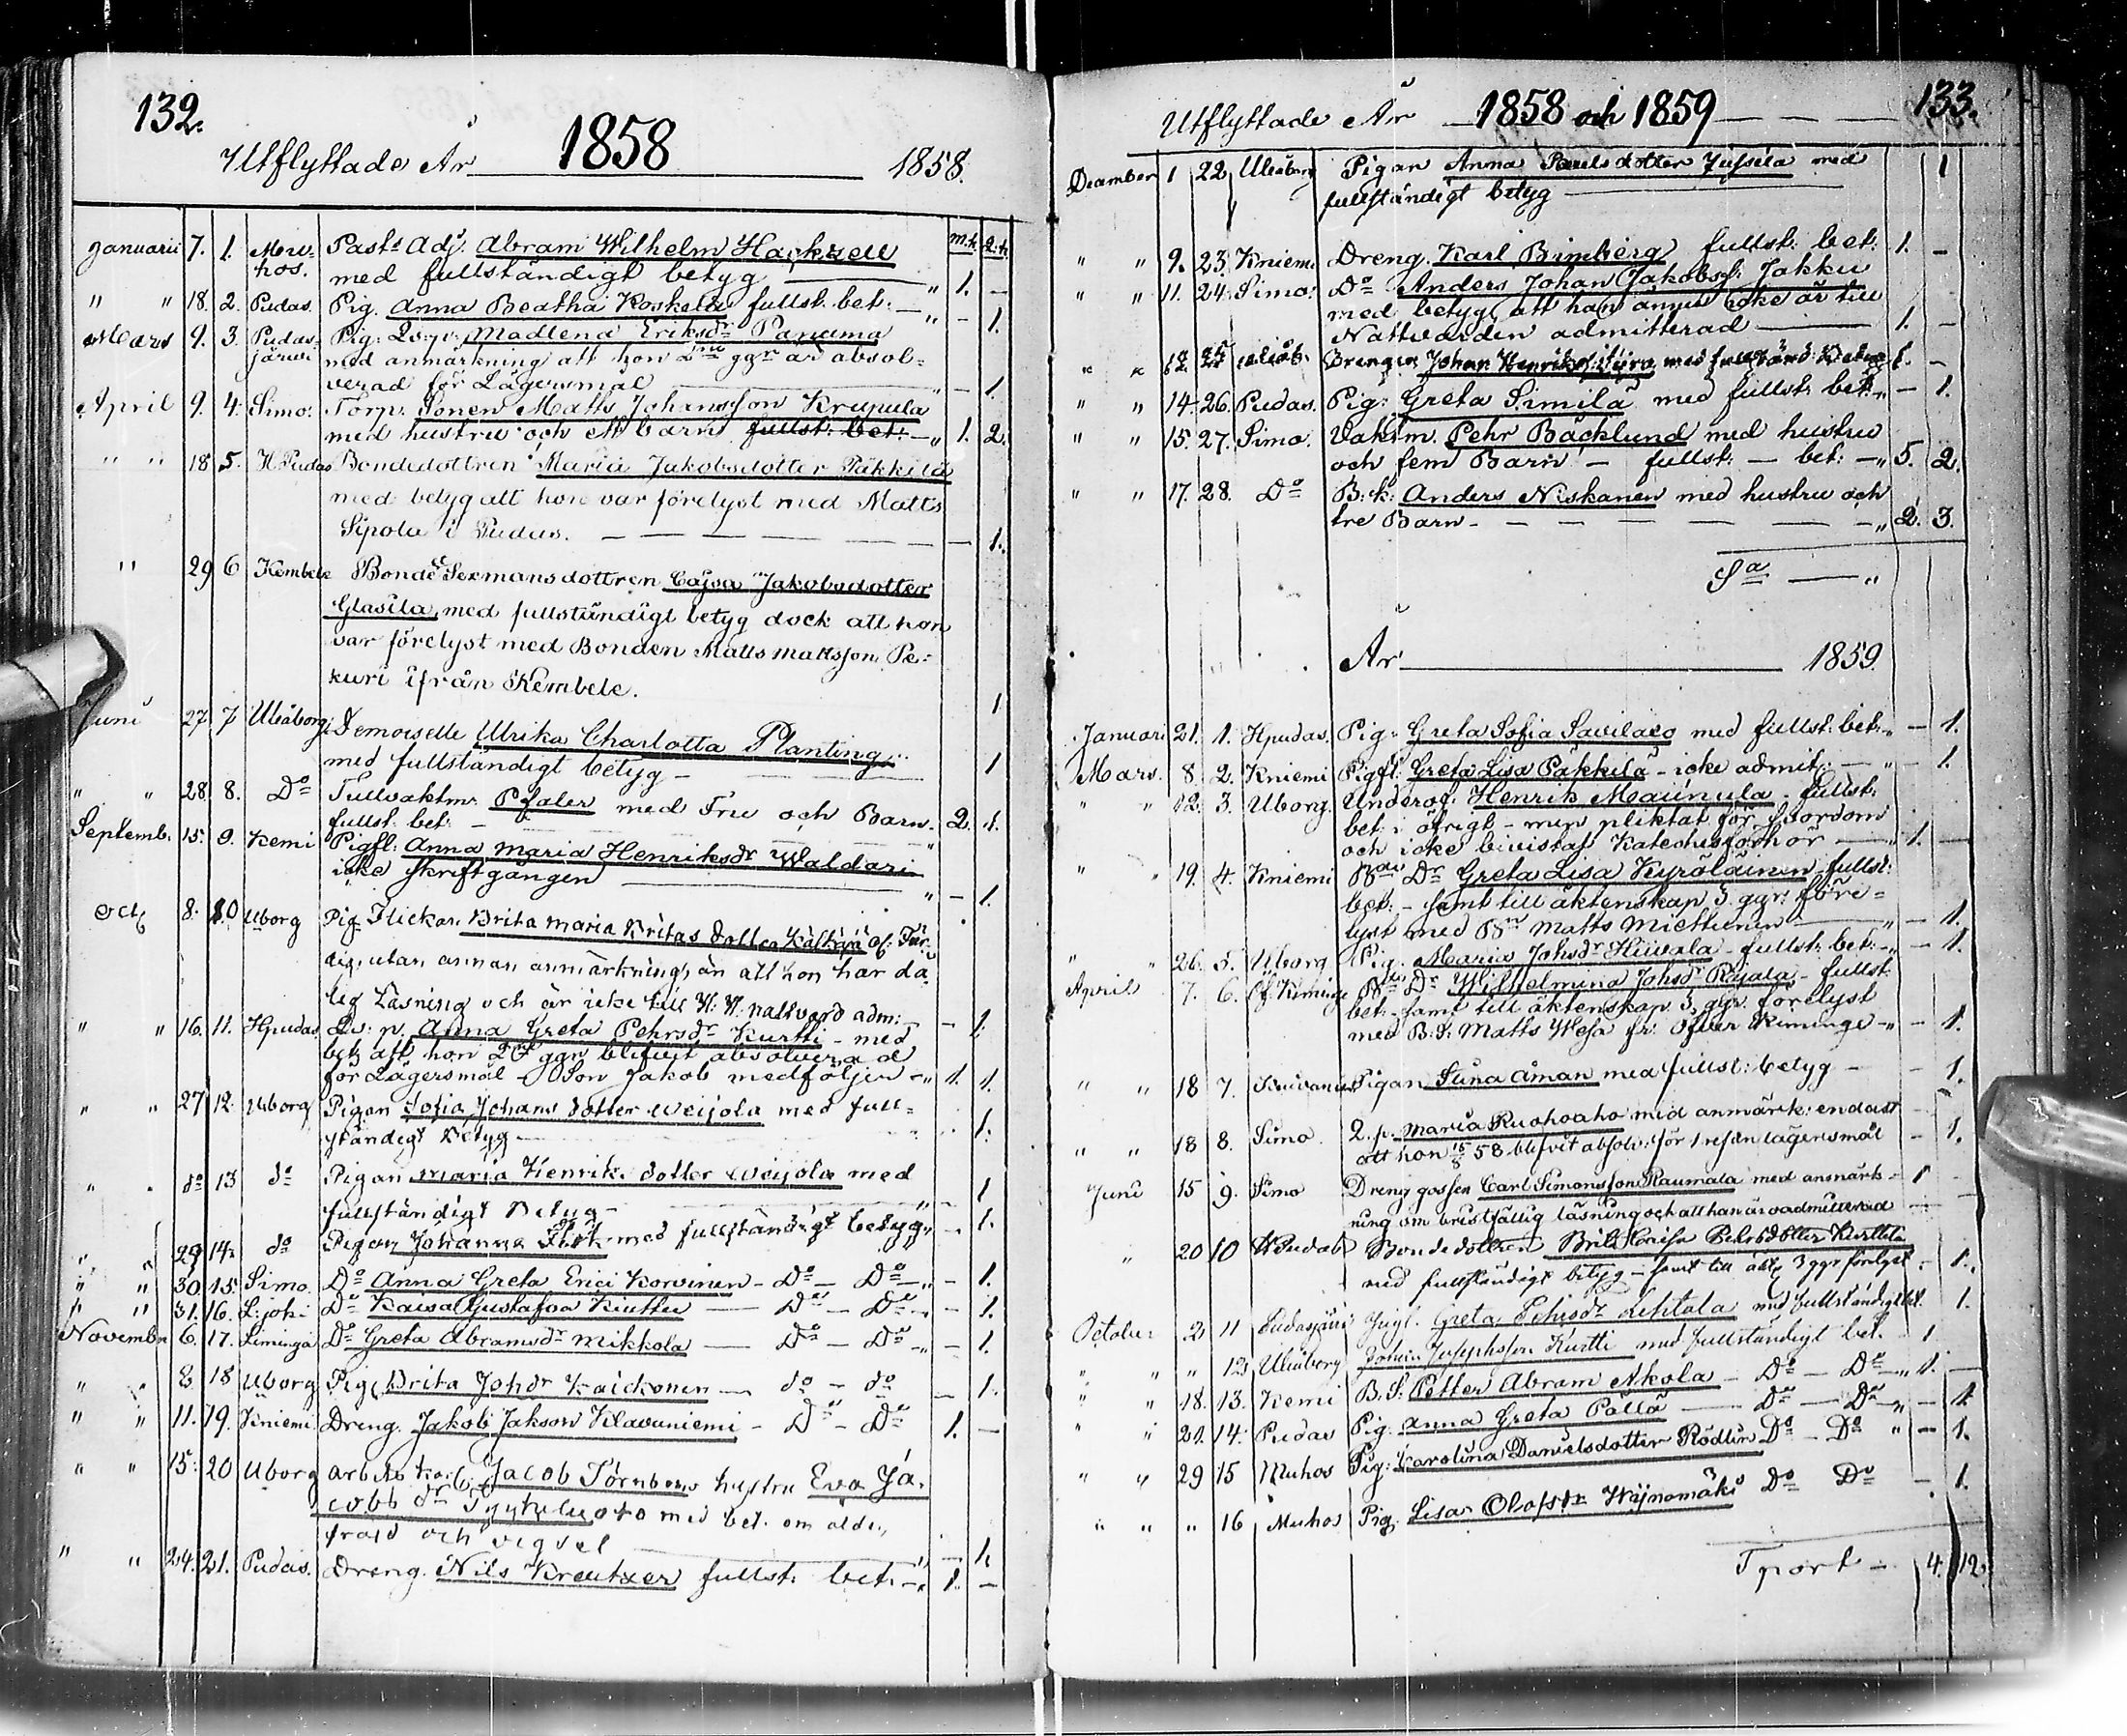 132.
Utflyttade År 1858 1858.
m.k. q.k.
Januarii 7. 1. Mu-
hos. Past: Adj. Abram Wilhelm Hackzell
med fullständigt betyg — " 1. —
" " 18. 2. Pudas. Pig. Anna Beatha Koskela fullst. bet: — " — 1.
Mars 9. 3. Pudas- Pig: Qvp: Madlena Eriksdr Panuma
järwi med anmärkning att hon ggr är absol-
verad för Lägersmål — " — 1.
April 9. 4. Simo. Torp. Sonen Matts Johansson Krupula
med hustru och ett barn fullst: bet: — " 1. 2.
" " 18 5. H Pudas Bondedottren Maria Jakobsdotter Päkkilä
med betyg att hon var förelyst med Matts
Sipola i Pudas. — — 1.
" 29 6 Kembele Bonde Sexmansdottren Cajsa Jakobsdotter
Glasila, med fullständigt betyg dock att hon
var förelyst med Bonden Matts Mattsson Pe-
kuri ifrån Kembele. 1
Juni 27 7 Uleåborg Demoiselle Ulrika Charlotta Planting
med fullständigt betyg — 1
" " 28 8. Do Tullvaktm: Pfaler med Fru och Barn.
fullst. bet: — 2. 1.
Septemb. 15. 9. Kemi Pigfl: Anna Maria Henriksdr Waldari
icke skriftgången — " — 1.
Oct 8. 10 Uborg Pig Flickan Brita Maria Britas dotter
utan annan anmärkning, än att hon har då-
lig Läsning och är icke till H. H. nattvard adm: — 1.
" " 16. 11. Hpudas Qv: p. Anna Greta Pehrsdr Kurtti - med
bet: att hon 2 ggn blifvit absolverad
för Lägersmål - Son Jakob medföljer — " 1. 1.
" " 27 12. Uborg Pigan Sofia Johans dotter Weijola med full-
ständigt Betyg — 1.
" " do 13 do Pigan Maria Henriks dotter Weijola med
fullständigt Betyg — " 1
" " 29 14. do Pigan Johanna med fullständigt betyg " — 1.
" " 30 15. Simo. Do Anna Greta Erici Korvinen - Do — Do — " — 1.
" " 31. 16. L:joki Do Kaisa Gustafva Kiuttu — Do — Do — " — 1.
November 6. 17. Liminga Do Greta Abramsdr Mikkola — Do — Do — " — 1.
" " 8 18 Uborg Pig. Brita Johdr Kaickonen — do — do — 1.
" " 11. 19. Kniemi Dreng. Jakob Jakson Kilavuniemi - Do — Do 1. —
" " 15. 20 Uborg Arbets Karl. Jacob Törnbom hustru Eva Ja-
cobs dr med bet. om ålder,
fräjd och vigsel — " — 1.
" " 24. 21. Pudas. Dreng. Nils Kreutzer fullst: bet: — " 1. —
133.
Utflyttade År 1858 och 1859
December 1 22 Uleåborg Pigan Anna Paulsdotter Jussila med
fullständigt betyg — 1
" " 9. 23 Kniemi Dreng. Karl Brimberg fullst: bet: 1. —
" " 11. 24. Simo: Do Anders Johan Jakobss: Jakku
med betyg att han ännu icke är till
Nattvarden admitterad — 1. —
" " 12. 25 Uleåb. Drengen Johan Henrikss: med fullständ: Betyg 1. —
" " 14. 26. Pudas. Pig: Greta Similä med fullst: bet: " — 1.
" " 15. 27. Simo. Vaktm. Pehr Bäcklund med hustru
och fem Barn — fullst: — bet: — " 5. 2.
" " 17. 28. Do B:k: Anders Niskanen med hustru och
tre Barn — " 2. 3.
Sa — "
År 1859.
Januari 21. 1. Hpudas. Pig: Greta Sofia Savilaco med fullst: bet: " — 1.
Mars. 8. 2. Kniemi Pigfl: Greta Lisa Päkkilä - icke admit: — " — 1.
" " 12. 3. Uborg. Underof. Henrik Maunula - fullst:
bet: i öfrigt - men pliktat för Hordom
och icke bivistat Katechesförhör — " 1. —
" " 19. 4. Kniemi Bde Dr Greta Lisa Kyröläinen fullst:
bet: - samt till äktenskap 3 ggr: före-
lyst med Bn Matts Miettunen — " — 1.
" " 26. 5. Uborg Pig. Maria Johsdr Hiivala - fullst: bet: " — 1.
April 7. 6. Öf. Kiminge Bde Dr Wilhelmina Johsdr Rajala - fullst:
bet: samt till äktenskap 3 ggr. förelyst
med B:S: Matts Wesa fr: Öfver Kiminge " — 1.
" " 18 7. Kuivaniemi Pigan Stina Åman med fullst: betyg — — 1.
" " 18 8. Simo. Q. p. Maria Ruohoaho med anmärk: endast
att hon 15/8 58 blifvit absolv: för 1 resan lägersmål — 1.
Juni 15 9. Simo Dreng gossen Carl Simonsson Raumala med anmärk- 1
ning om bristfällig läsning och att han är oadmitterad —
" 20 10 H Pudas Bondedottren Brita Caisa Pehrsdotter Kurttila
med fullständigt betyg - samt till äkt 3 ggr förelyst — 1.
October 2 11 Pudasjärvi Pigl. Greta Lehtola med fullständigt bet. 1.
" " " 12 Uleåborg Josephsson Kurtti med fullständigt bet. 1
" " 18. 13. Kemi B. S: Petter Abram Akola — Do — Do — " 1. —
" " 21. 14. Pudas Pig: Anna Greta Pällä — Do — Do " — 1
" " 29 15 Muhos Pig: Karolina Danielsdotter Rödlin Do — Do " — 1.
" " " 16 Muhos Pig. Lisa Olofsdr Wäjnomäki Do Do — 1.
Tport — 4. 12.